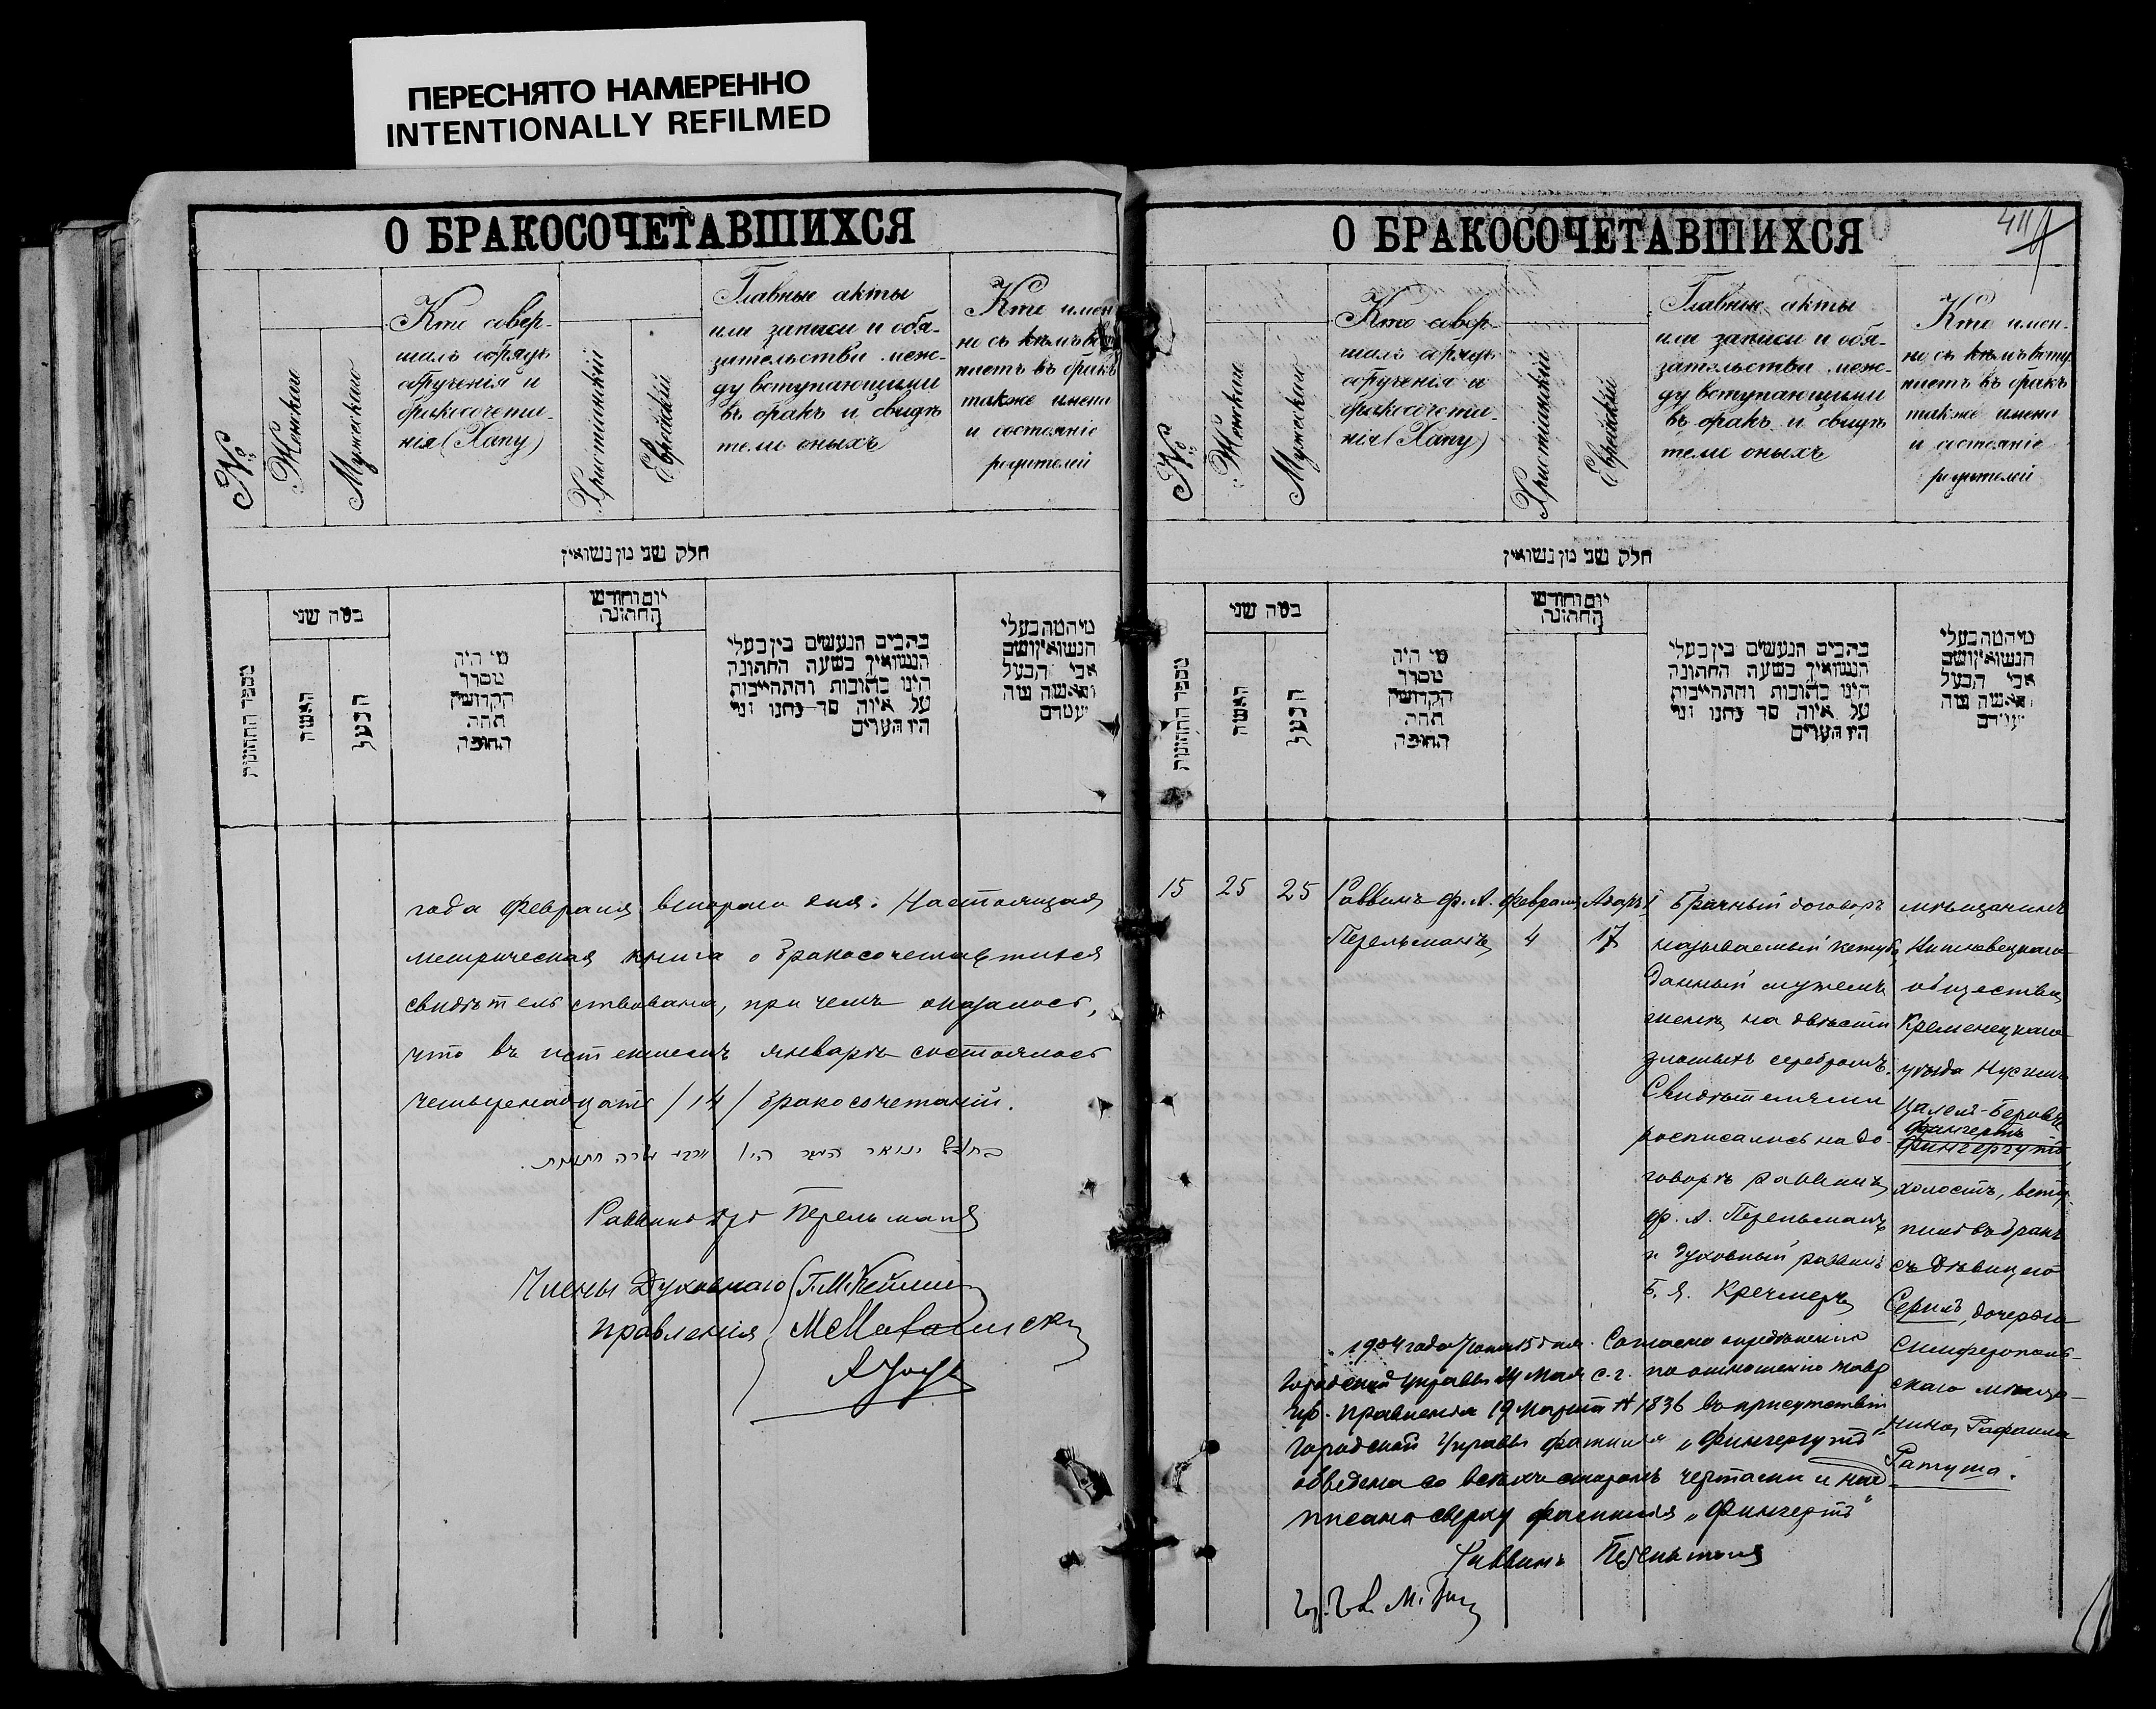 ПЕРЕСНЯТО НАМЕРЕННО
INTENTIONALLY REFILMED
О БРАКОСОЧЕТАВШИХСЯ
№
Женскаго
Мужескаго
Кто совер-
шалъ обрядъ
обрученія и
бракосочета-
нія (Хапу)
Христіанскій
Еврейскій
Главные акты
или записи и обя-
зательства меж-
ду вступающими
въ бракъ и свидѣ
тели оныхъ
Кто имен
но съ кѣмъ
паетъ въ бракъ
также имена
и состояніе
родителей
חלק שני מן נשואין
מספר החתונות
כמה שני
האשה
הבעל
מי היה
מסדר
הקדושין
תחת
החופה
יום וחודש
החתונה
כתבים הנעשים בין בעלי
הנשואין בשעה החתונה
היינו כתובות והתחייבות
על איזה סך נתנו ומי
היו העדים
מיהמה בעלי
הנשואין ושם
אבי הבעל
והאשה ומה
מעמדם
года Февраля втораго дня. Настоящая
метрическая книга о бракосочетавшихся
свидѣтельствована, при чемъ оказалось,
что въ истекшемъ январѣ состоялось
четырнадцать /14/ бракосочетаній.
ינואר היו
Раввинъ Перельманъ
Члены Духовнаго
правленія
О БРАКОСОЧЕТАВШИХСЯ
411
№
Женскаго
Мужескаго
Кто совер-
шалъ обрядъ
обрученія и
бракосочета-
нія (Хапу)
Христіанскій
Еврейскій
Главные акты
или записи и обя-
зательства меж-
ду вступающими
въ бракъ и свидѣ
тели оныхъ
Кто имен-
но съ кѣмъ всту
паетъ въ бракъ
также имена
и состояніе
родителей
חלק שני מן נשואין
מספר החתונות
כמה שני
האשה
הבעל
מי היה
מסדר
הקדושין
תחת
החופה
יום וחודש
החתונה
כתבים הנעשים בין בעלי
הנשואין בשעה החתונה
היינו כתובות והתחייבות
על איזה סך נתנו ומי
היו העדים
מיהמה בעלי
הנשואין ושם
אבי הבעל
והאשה ומה
מעמדם
15 25 25
Раввинъ Ф. А.
Перельманъ
Февраля
4
Адаръ I
17
Брачный договоръ
называемый кетуба,
данный мужемъ
женѣ, на двѣсти
злотыхъ серебромъ.
Свидѣтелями
росписались на до-
говорѣ раввинъ
Ф. А. Перельманъ
и духовный раввинъ
Б. Я. Кречмеръ
мѣщанинъ
общества,
Кременецкаго
уѣзда Нусимъ
Цалель-Беровъ
Фингертъ
Фингергутъ,
холостъ, всту-
пилъ въ бракъ
съ дѣвицею
Серилъ, дочерью
Симферополь-
скаго мѣща-
нина Рафаила
Ратуша.
1904 года Іюня 15 дня. Согласно опредѣленію
Городской Управы Мая с. г. по отношенію Тавр.
губ. Правленія 19 Марта № 1836 въ присутствіи
Городской Управы фамилія „Фингергутъ"
обведена со всѣхъ сторонъ чертами и над-
писана сверху фамилія „Фингертъ"
Раввинъ Перельманъ